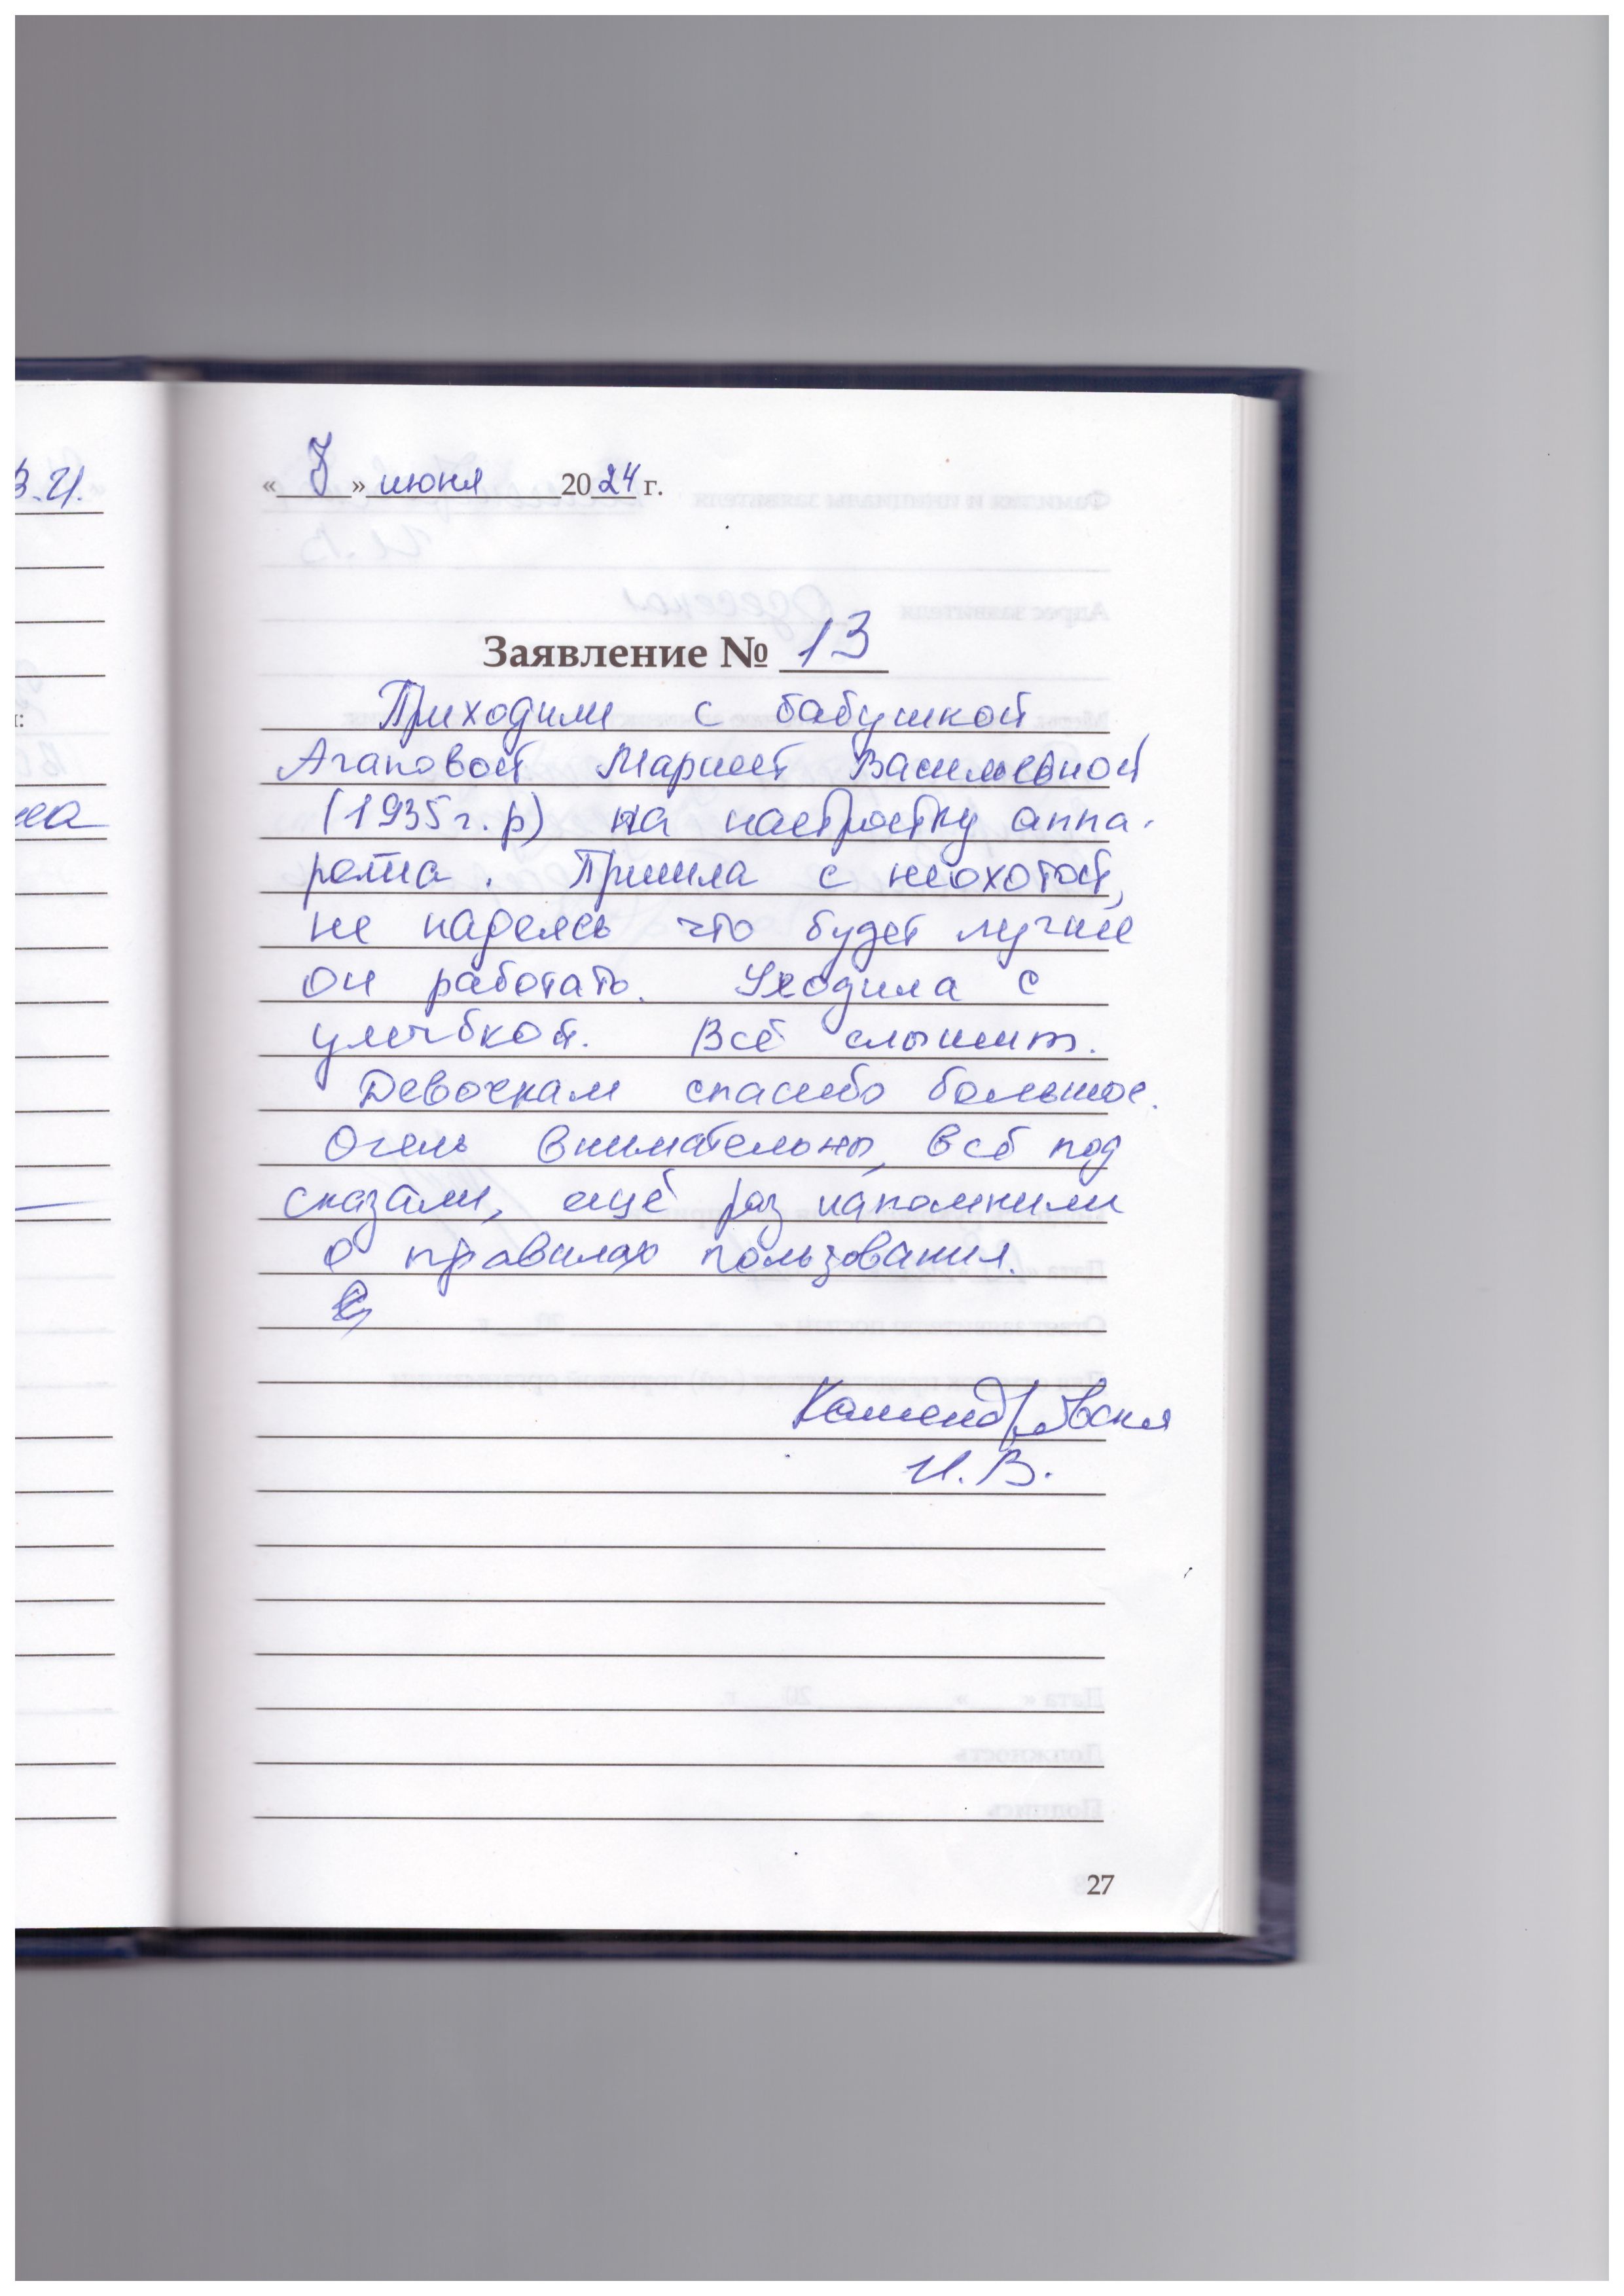 В.И.
« 7 » июня 2024 г.
Заявление № 13
Приходили с бабушкой
Агаповой Марией Васильевной
(1935г.р) на настройку аппа-
рата. Пришла с неохотой,
не надеясь что будет лучше
он работать. Уходила с
улыбкой. Всё слышит.
Девочкам спасибо большое.
Очень внимательны, всё под
сказали, ещё раз напомнили
о правилах пользования.
И.В.
27